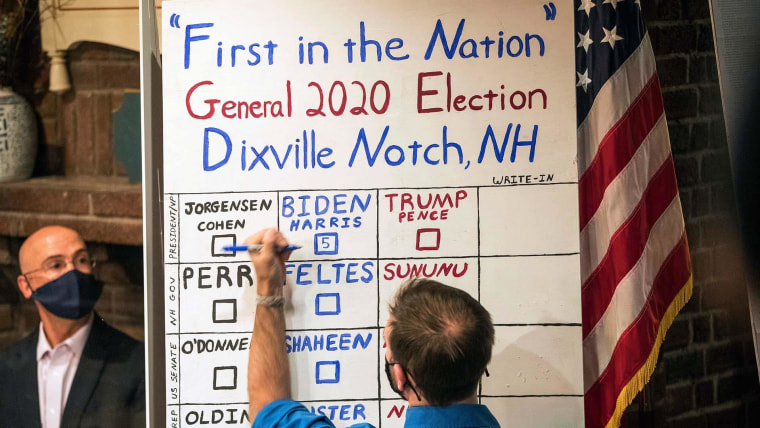 "First in the Nation"
General 2020 Election
Dixville Notch, NH
WRITE-IN
PRESIDENT/VP
JORGENSEN
COHEN
BIDEN
HARRIS
5
TRUMP
PENCE
NH GOV
PERR
FELTES
SUNUNU
US SENATE
O'DONNE
SHAHEEN
REP
OLDIN
USTER